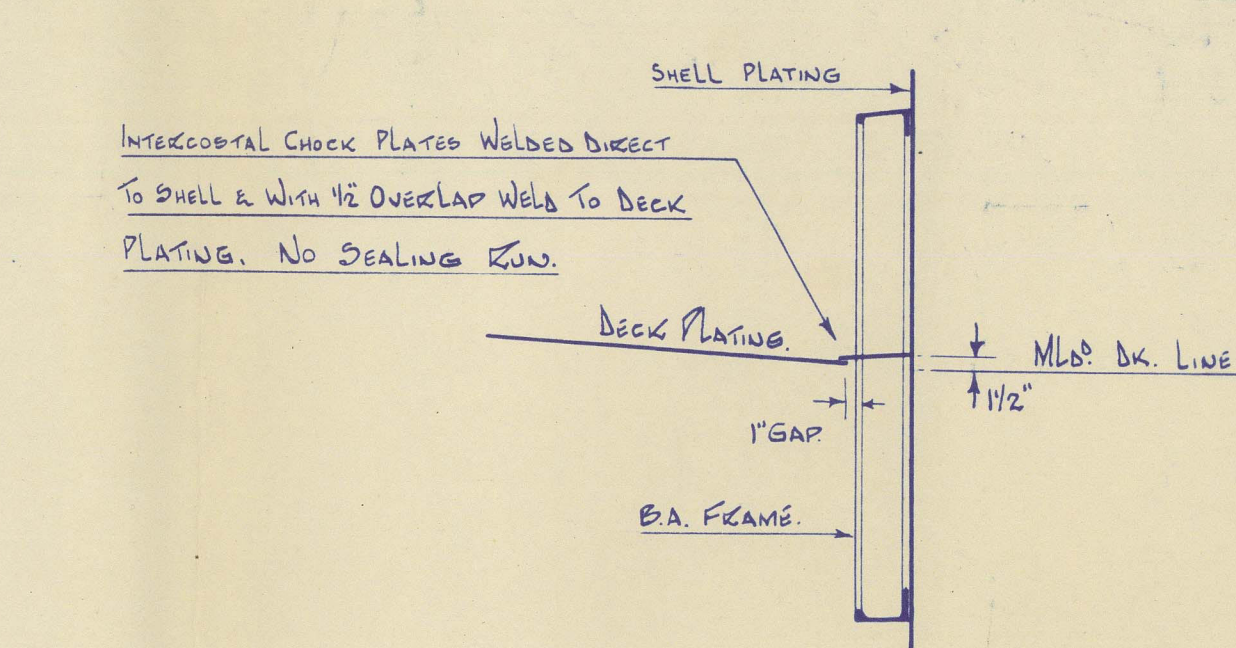 SHELL PLATING
INTERCOSTAL CHOCK PLATES WELDED DIRECT
TO SHELL & WITH 1/2" OVERLAP WELD TO DECK
PLATING. NO SEALING RUN.
DECK PLATING.
MLDD. DK. LINE
1 1/2"
1" GAP.
B.A. FRAME.